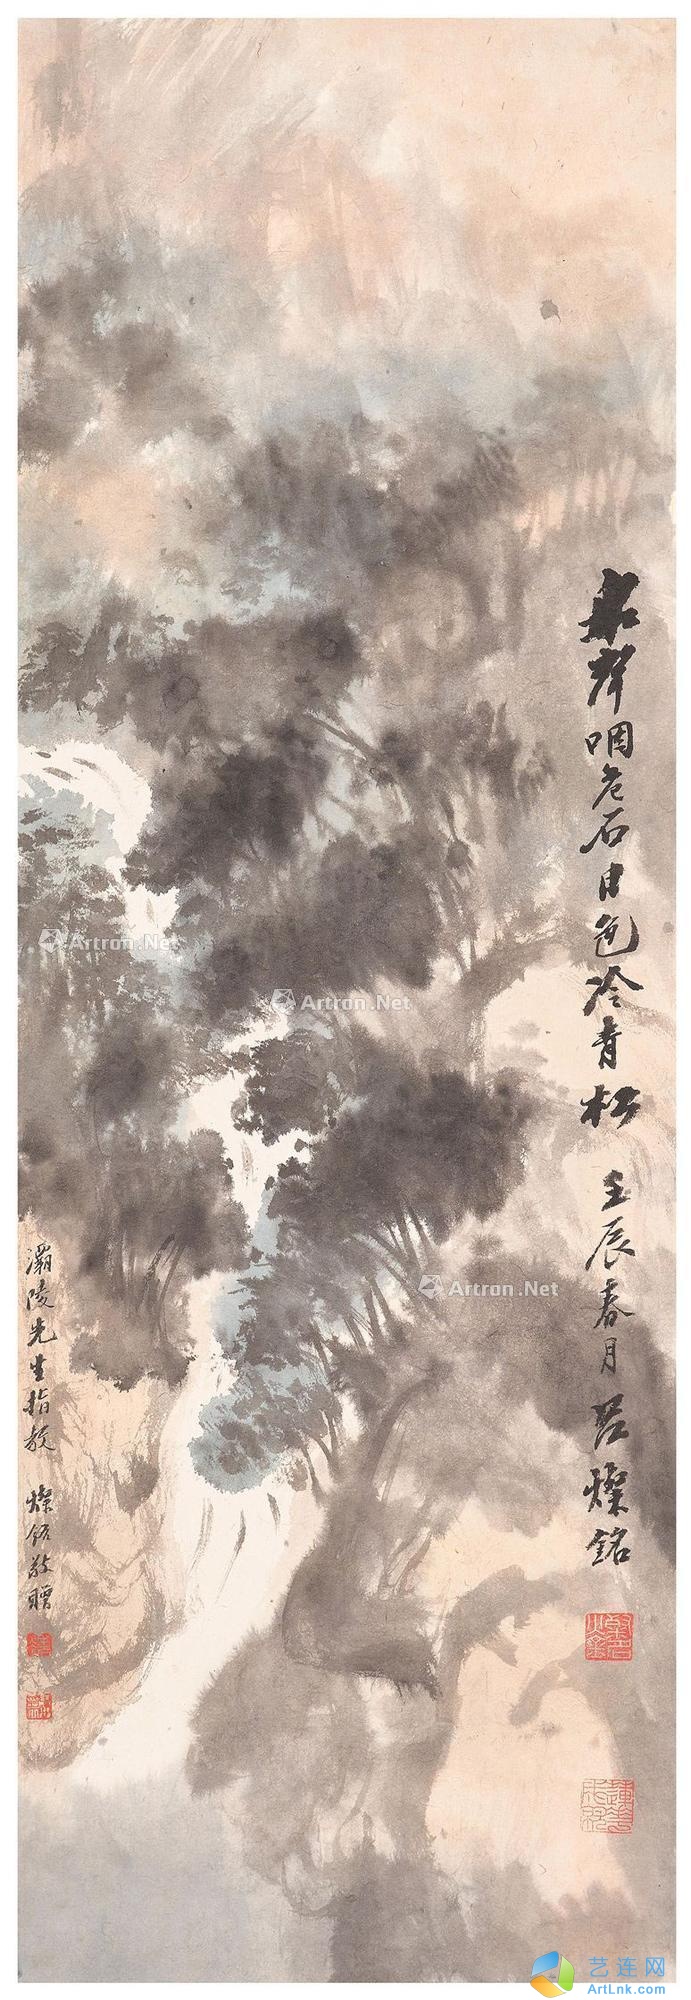 泉声咽危石日色冷青松 壬辰春月 吕灿铭
灞陵先生指教 燦銘敬贈
Artron.Net
Artron.Net
Artron.Net
艺连网
ArtLnk.com